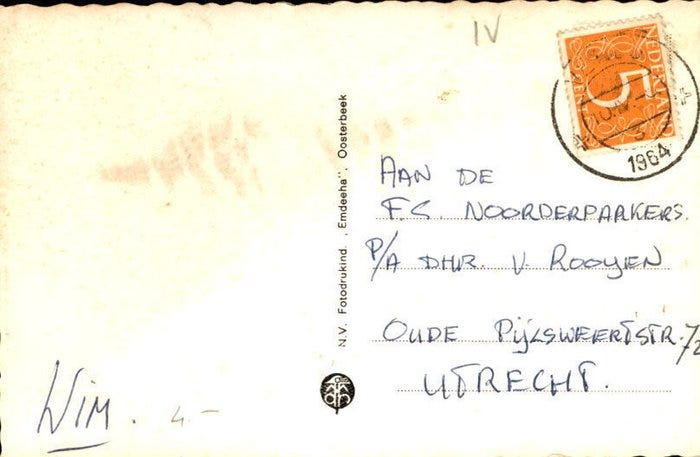 IV
NEDERLAND
5
1964
AAN DE
F.S. NOORDERPARKERS.
P/A DHR. V. ROOYEN
OUDE PIJLSWEERTSTR.
UTRECHT.
N.V. Fotodrukind. „Emdeeha", Oosterbeek
WIM. 4.-